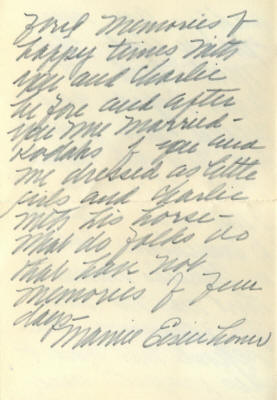 Fond memories of
happy times with
you and Charlie
before and after
you were married -
Kodaks of you and
me dressed as little
girls and Charlie
with his horse -
What do folks do
that have not
memories of
days -
Mamie Eisenhower